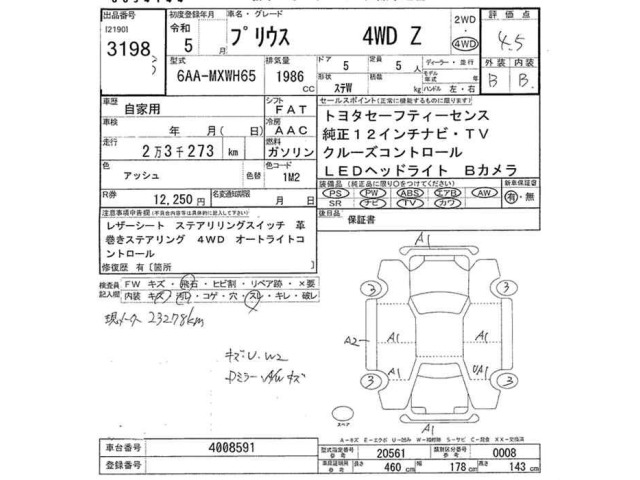 出品番号
[21901]
3198
初度登録年月
令和
5 月
車名・グレード
プリウス 4WD Z
2WD
・
4WD
評価点
4.5
型式
6AA-MXWH65
排気量
1986 CC
ドア 5
定員 5 人
形状
ステW
積載
kg
ディーラー・並行
モデル年式 年
ハンドル 左・右
外装 内装
B B
車歴
自家用
シフト
FAT
車検
年 月( 日)
冷房
AAC
走行
2万3千273 km
燃料
ガソリン
色
アッシュ
色替
色コード
1M2
R券
12,250 円
名変通知期限
月 日
セールスポイント(正常に機能するものに限ります)
トヨタセーフティーセンス
純正12インチナビ・TV
クルーズコントロール
LEDヘッドライト Bカメラ
装備品(純正品に限り○をつけてください)
PS PW ABS エアB AW
SR ナビ TV カワ
新車保証書
有・無
後日品 保証書
注意事項申告欄(不具合内容等は具体的に記入して下さい)
レザーシート ステアリングスイッチ 革
巻きステアリング 4WD オートライトコ
ントロール
修復歴 有〔箇所 〕
検査員
記入欄
FW キズ・飛石・ヒビ割・リペア跡・×要
内装 キズ・汚れ・コゲ・穴・スレ・キレ・破レ
現メーター 23278km
キズU.W2
Dミラー A/Wキズ
A1
3 3
A2 A1 A1
A1 UA1
3 3
A1
スペア
A-キズ E-エクボ U-凹み W-補修跡 S-サビ C-腐食 XX-交換済
車台番号 4008591
登録番号
型式指定番号 20561
類別区分番号 0008
車庫証明用 長さ 460 cm 幅 178 cm 高さ 143 cm